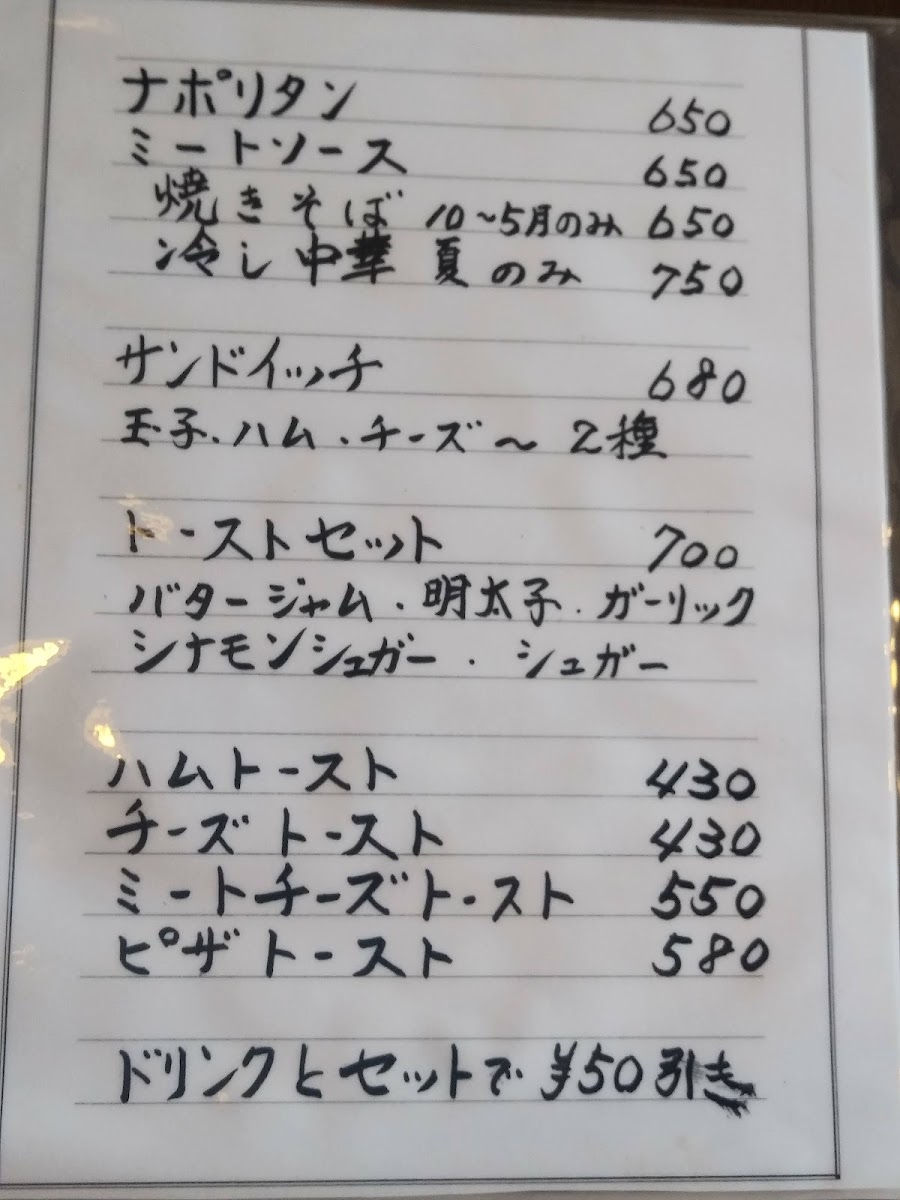 ナポリタン 650
ミートソース 650
焼きそば 10～5月のみ 650
冷し中華 夏のみ 750
サンドイッチ 680
玉子・ハム・チーズ～2種
トーストセット 700
バタージャム・明太子・ガーリック
シナモンシュガー・シュガー
ハムトースト 430
チーズトースト 430
ミートチーズトースト 550
ピザトースト 580
ドリンクとセットで ¥50引き